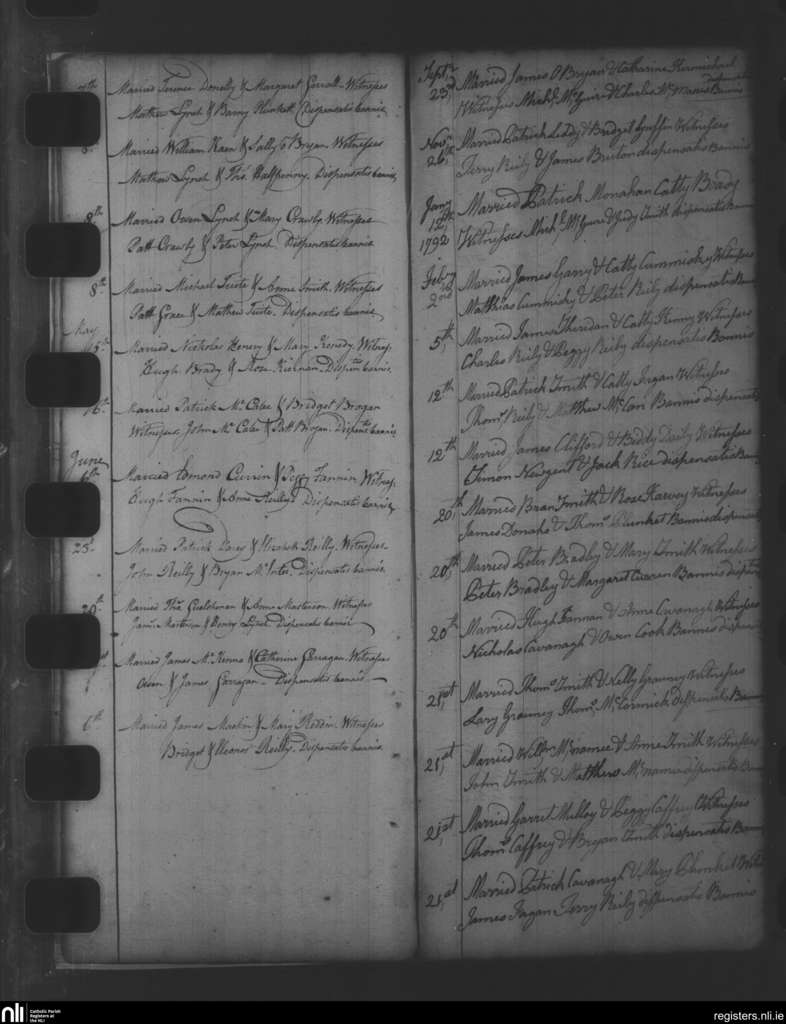 7th Married Terence Donelly & Margaret Garrall. Witnesses
Mathew Lynch & Barny Plunkett. Dispensatis bannis
8th Married William Kaen & Sally O Bryan. Witnesses
Mathew Lynch & Halfpenny. Dispensatis bannis
8th Married Owen Lynch & Mary Crawly. Witnesses
Patt Crawly & Peter Lynch. Dispensatis bannis
8th Married Michael Tuite & Anne Smith. Witnesses
Patt Grace & Mathew Tuite. Dispensatis bannis
May
Married Nicholas Henery & Mary Kenedy. Witness
Hugh Brady & Rose Kiernan. bannis
16th Married Patrick McCabe & Bridget Brogan
Witnesses John McCabe & Patt Brogan. bannis
June
6th Married Edmond Currin & Peggy Fannin. Witness
Hugh Fannin & Anne Reilly. Dispensatis bannis
Married Patrick & Reilly. Witnesses
John Reilly & Bryan. Dispensatis bannis
Married & Anne Masterson. Witnesses
Jams Masterson & Lynch. Dispensatis bannis
Married James McKenna & Catherine Garragan. Witnesses
Owen & James Garragan. Dispensatis bannis
6th Married James & Mary Reddin. Witnesses
Bridget & Eleanor Reilly. Dispensatis bannis
Septr 23rd Married James O Bryan & Catharine
Witnesses Michl McGuire & Charles McManus Bannis
Novr 26th Married Patrick Leddy & Bridget Griffin Witnesses
Terry Reily & James Bruton dispensatis Bannis
Jany 12th 1792 Married Patrick Monahan Catty Brady
Witnesses Michl McGuire & Judy Smith dispensatis
Febry 2nd Married James Garry & Catty Cummisky Witnesses
Matthias Cummisky & Peter Reily dispensatis
5th Married James Sheridan & Catty Kenny Witnesses
Charles Reily & Peggy Reily dispensatis Bannis
12th Married Patrick Smith & Catty Fagan Witnesses
Thoms Reily & Matthew McCan Bannis dispensatis
12th Married James Clifford & Biddy Daily Witnesses
Simon Newgent & Jack Rice dispensatis
20th Married Brian Smith & Rose Harvey Witnesses
James Donaho & Thoms Plunket Bannis
20th Married Peter Bradley & Mary Smith Witnesses
Peter Bradley & Margaret Curren Bannis
20th Married Hugh Fannan & Anne Cavanagh Witnesses
Nicholas Cavanagh & Owen Cook Bannis
21st Married Thoms Smith & Nelly Granney Witnesses
Lary Granney Thoms McCormick dispensatis
21st Married Willm Mcnamee & Anne Smith Witnesses
John Smith & Matthew Mcnamee dispensatis
21st Married Garret Mulloy & Peggy Caffrey Witnesses
Thoms Caffrey & Bryan Smith dispensatis
21st Married Patrick Cavanagh & Mary Plunket
James Fagan Terry Reily dispensatis Bannis
nli Catholic Parish Registers at the NLI
registers.nli.ie